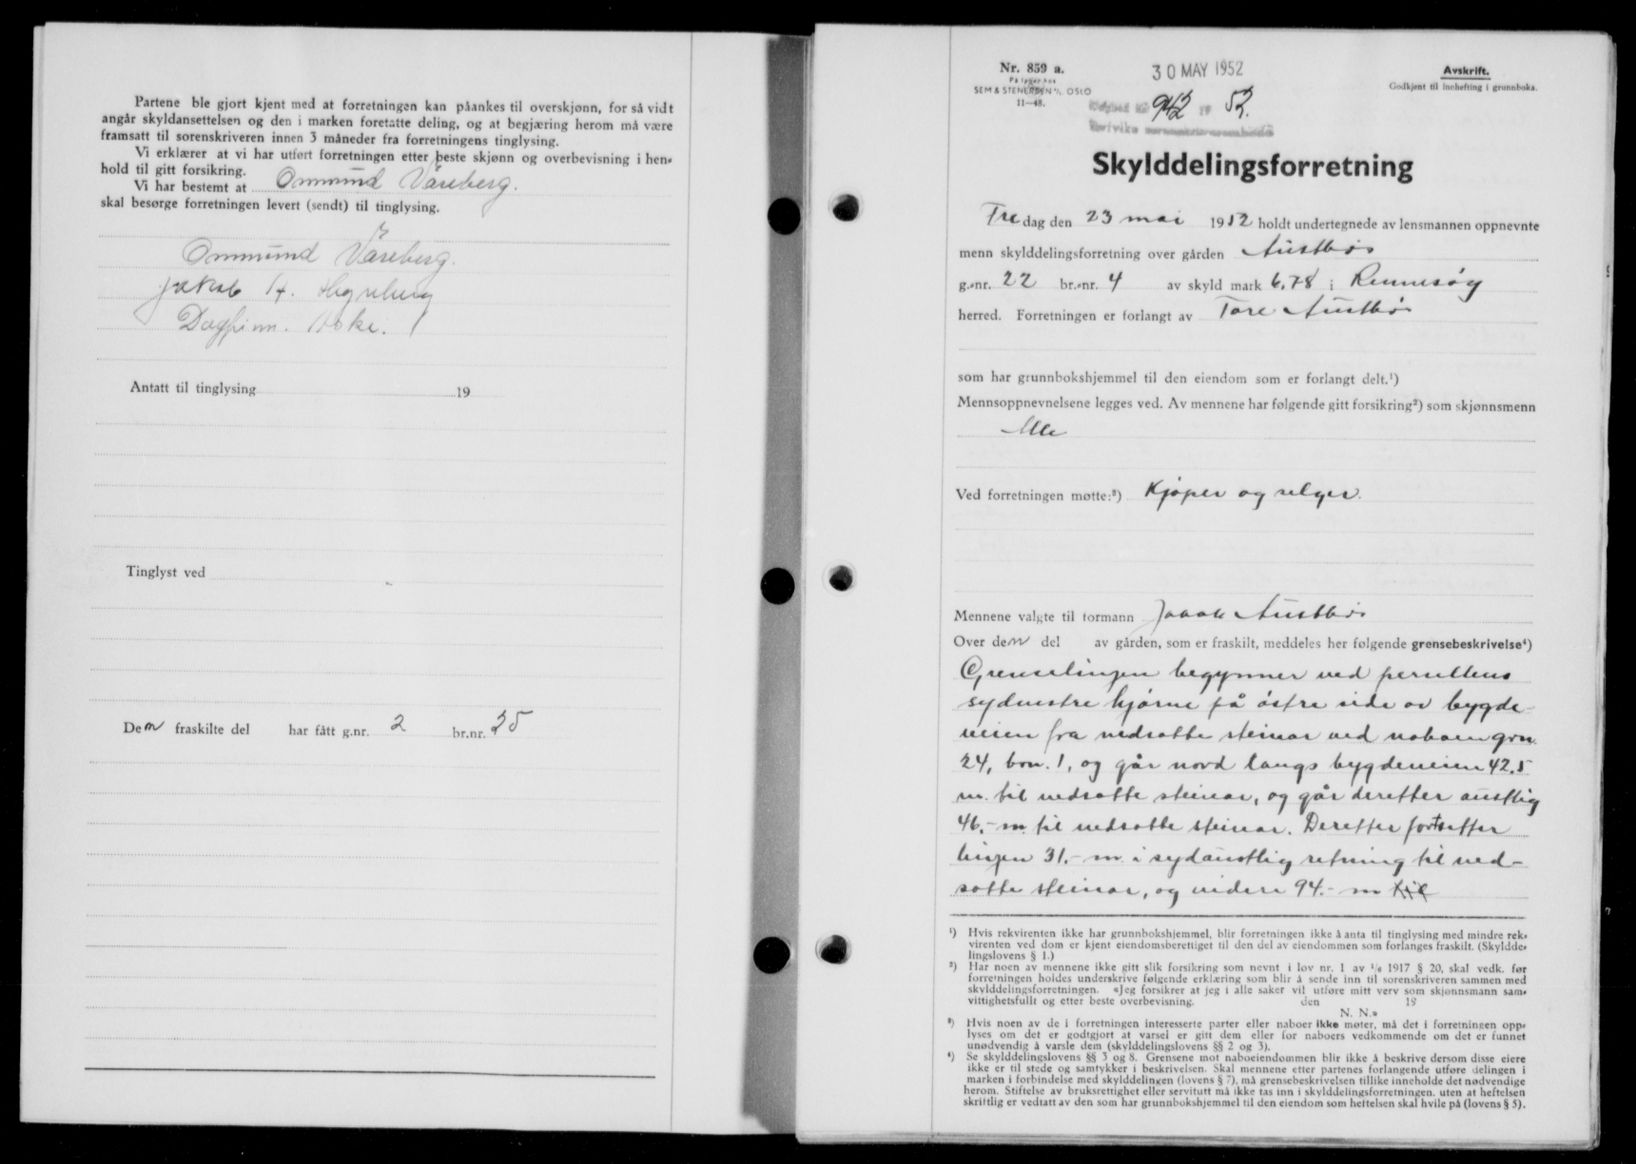 Partene ble gjort kjent med at forretningen kan påankes til overskjønn, for så vidt
angår skyldansettelsen og den i marken foretatte deling, og at begjæring herom må være
framsatt til sorenskriveren innen 3 måneder fra forretningens tinglysing.
Vi erklærer at vi har utført forretningen etter beste skjønn og overbevisning i hen-
hold til gitt forsikring.
Vi har bestemt at Ommund Våreberg.
skal besørge forretningen levert (sendt) til tinglysing.
Ommund Våreberg.
Jakob H.
Dagfinn.
Antatt til tinglysing 19
Tinglyst ved
Den fraskilte del har fått g.nr. 2 br.nr. 25
Nr. 859 a.
På lager hos
SEM & STENERSEN A/S OSLO
11-48.
30 MAY 1952
942 19 52.
Avskrift.
Godkjent til innhefting i grunnboka.
Skylddelingsforretning
Fredag den 23 mai 1952 holdt undertegnede av lensmannen oppnevnte
menn skylddelingsforretning over gården Austbø
g.-nr. 22 br.-nr. 4 av skyld mark 6,78 i Rennesøy
herred. Forretningen er forlangt av Tore Austbø
som har grunnbokshjemmel til den eiendom som er forlangt delt.¹)
Mennsoppnevnelsene legges ved. Av mennene har følgende gitt forsikring²) som skjønnsmenn
Alle
Ved forretningen møtte:³) Kjøper og selger.
Mennene valgte til formann Austbø
Over den del av gården, som er fraskilt, meddeles her følgende grensebeskrivelse⁴)
Grenselinjen begynner ved persellens
sydvestre hjørne på østre side av bygde-
veien fra nedsatte steinar ved naboen grn.
24, brn. 1, og går nord langs bygdeveien 42,5
m. til nedsatte steinar, og går deretter austlig
46,- m. til nedsatte steinar. Deretter fortsetter
linjen 31,- m. i sydaustlig retning til ned-
satte steinar, og videre 94.- m til
¹) Hvis rekvirenten ikke har grunnbokshjemmel, blir forretningen ikke å anta til tinglysing med mindre rek-
virenten ved dom er kjent eiendomsberettiget til den del av eiendommen som forlanges fraskilt. (Skyldde-
lingslovens § 1.)
²) Har noen av mennene ikke gitt slik forsikring som nevnt i lov nr. 1 av 1/6 1917 § 20, skal vedk. før
forretningen holdes underskrive følgende erklæring som blir å sende inn til sorenskriveren sammen med
skylddelingsforretningen. «Jeg forsikrer at jeg i alle saker vil utføre mitt verv som skjønnsmann sam-
vittighetsfullt og etter beste overbevisning. den 19
N. N.»
³) Hvis noen av de i forretningen interesserte parter eller naboer ikke møter, må det i forretningen opp-
lyses om det er godtgjort at varsel er gitt dem eller for naboers vedkommende om det er funnet
unødvendig å varsle dem (skylddelingslovens §§ 2 og 3).
⁴) Se skylddelingslovens §§ 3 og 8. Grensene mot naboeiendommen blir ikke å beskrive dersom disse eiere
ikke er til stede og samtykker i beskrivelsen. Skal mennene etter partenes forlangende utføre delingen i
marken i forbindelse med skylddelingen (lovens § 7), må grensebeskrivelsen tillike inneholde det nødvendige
herom. Stiftelse av bruksrettighet eller servitutt må ikke tas inn i skylddelingsforretningen, uten at heftelsen
skriftlig er vedtatt av den som har grunnbokshjemmel til den eiendom som heftelsen skal hvile på (lovens § 5).